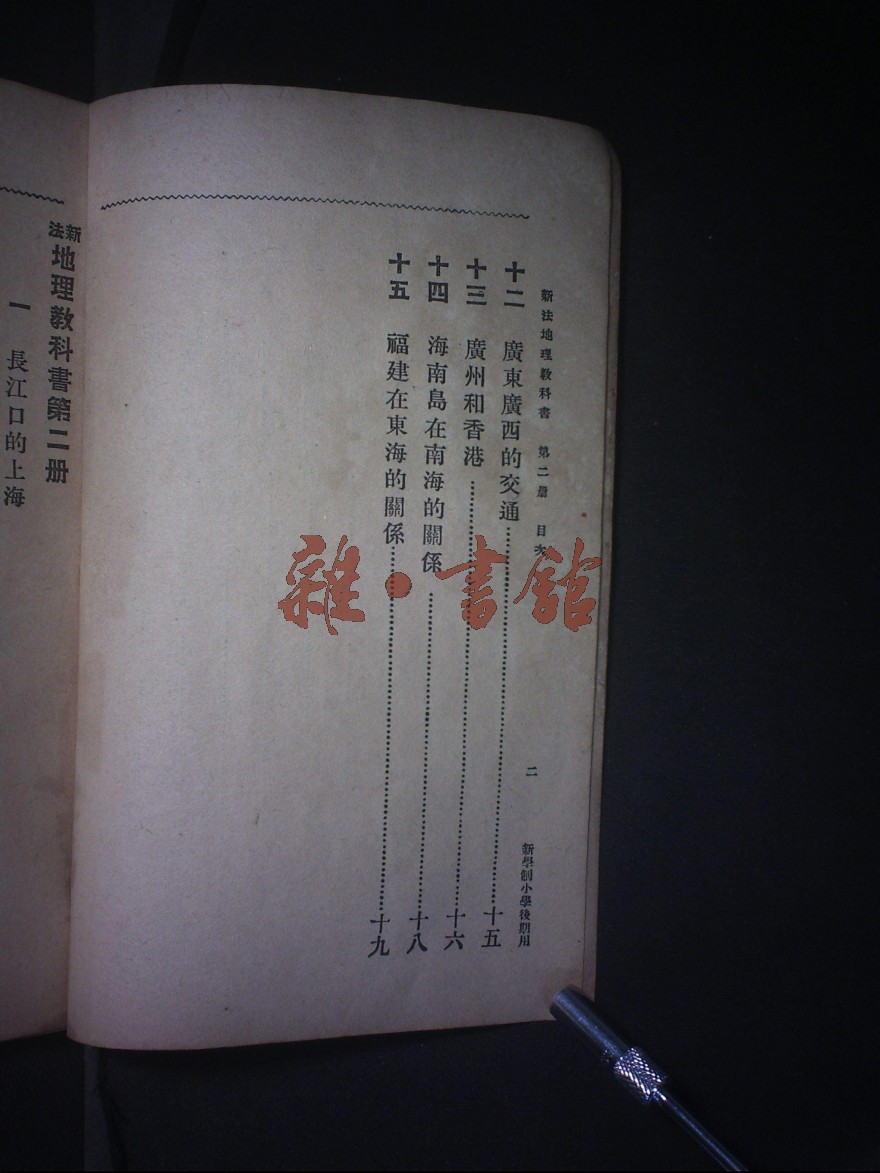 新法地理教科書 第二册 目次 二 新學制小學後期用
十二 廣東廣西的交通 十五
十三 廣州和香港 十六
十四 海南島在南海的關係 十八
十五 福建在東海的關係 十九
新法地理教科書第二册
一 長江口的上海
雜·書館